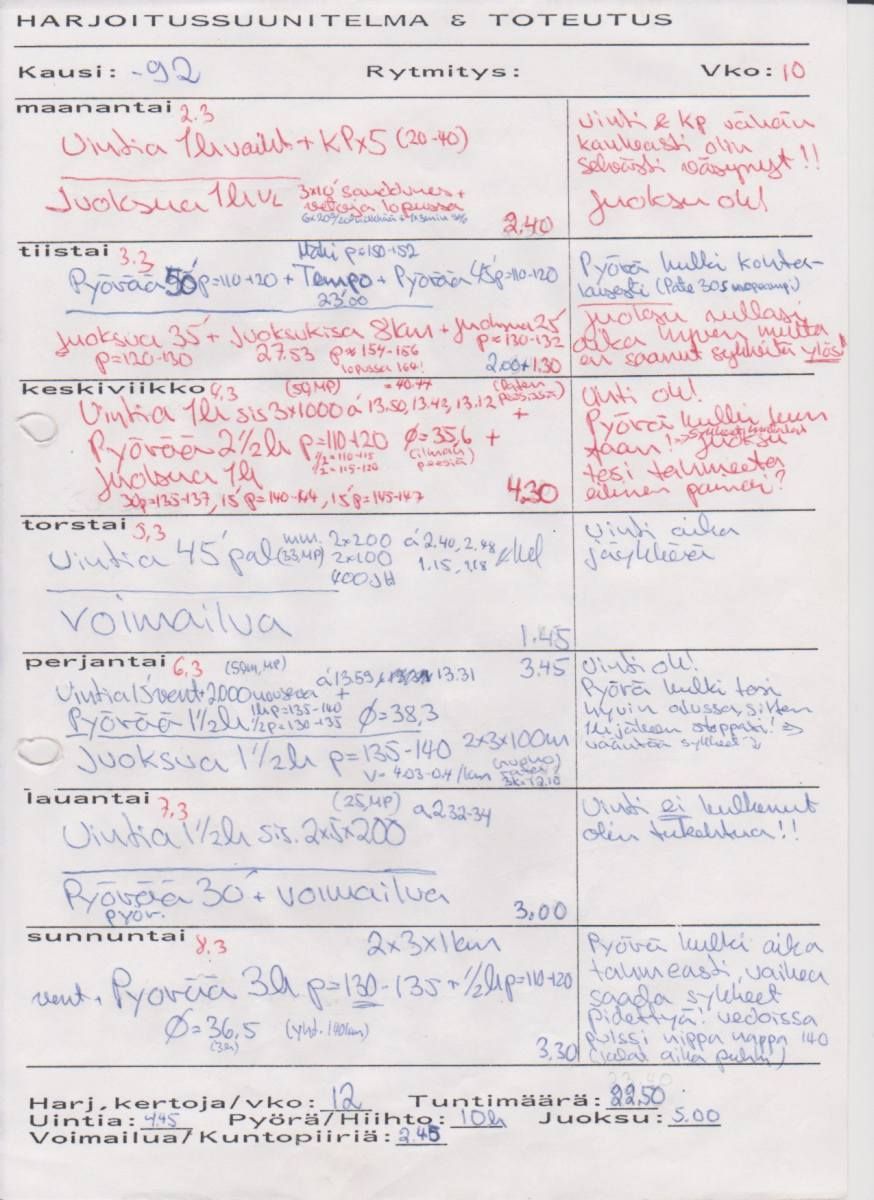 HARJOITUSSUUNITELMA & TOTEUTUS
Kausi: -92 Rytmitys: Vko: 10
maanantai 2.3
Uintia 1h vaiht + KP x 5 (20-40)
Juoksua 1h VL 3x10' +
vetoja lopussa
2.40
uinti & kp vähän
kankeasti olin
selvästi väsynyt!!
Juoksu ok!
tiistai 3.3
Mäki p=150-152
Pyörää 50' p=110-120 + Tempo + Pyörää 45' p=110-120
23'00
Juoksua 35' + Juoksukisa 8km + Juoksua 25'
p=120-130 27.53 p≈154-156 p=130-132
lopussa 164!
2.00+1.30
Pyörä kulki kohta-
laisesti (Pate 305 mopoampi)
Juoksu rullasi
aika hyvin mutta
en saanut sykkeitä ylös!
keskiviikko 4.3
(50, MP) = 40.44
Uintia 1h sis 3x1000 á 13.50, 13.42, 13.12 +
Pyörää 2 ½h p=110-120 Ø=35,6 +
½=110-115 (ilman
½=115-120 peesiä)
Juoksua 1h
30'p=135-137, 15'p=140-144, 15'p=145-147
4.30
Uinti ok!
Pyörä kulki kun
Juoksu
tosi tahmeeta
eilinen painoi?
torstai 5,3
Uintia 45' pal (33,MP) mm. 2x200 á 2.40, 2.48
2x100 1.15, 1,18
400JH
Voimailua
1.45
Uinti aika
jäykkää
perjantai 6,3 (50m, MP) 3.45
á 13.59 13.31
Uintia 15'vent + 2000 nousevaa +
Pyörää 1½h 1h p=135-140 Ø=38,3
½ p=130-135
Juoksua 1½h p=135-140 2x3x100m
v=4.03-04/km
Uinti ok!
Pyörä kulki tosi
hyvin alussa, sitten
1h jälkeen stoppasi! =>
vääntää sykkeet ?
lauantai 7,3
(25, MP) á 2.32-34
Uintia 1½h sis. 2x5x200
Pyörää 30' + voimailua
pyör.
3.00
Uinti ei kulkenut
olin tukehtua!!
sunnuntai 8.3
2x3x1km
vent + Pyörää 3h p=130-135 + ½h p=110-120
Ø=36.5 (yht. 140km)
(3h)
3.30
Pyörä kulki aika
tahmeasti, vaikea
saada sykkeet
pidettyä! vedoissa
pulssi nippa nappa 140
(jalat aika puhki)
Harj.kertoja/vko: 12 Tuntimäärä: 22.50
Uintia: 4.45 Pyörä/Hiihto: 10h Juoksu: 5.00
Voimailua/Kuntopiiriä: 2.45